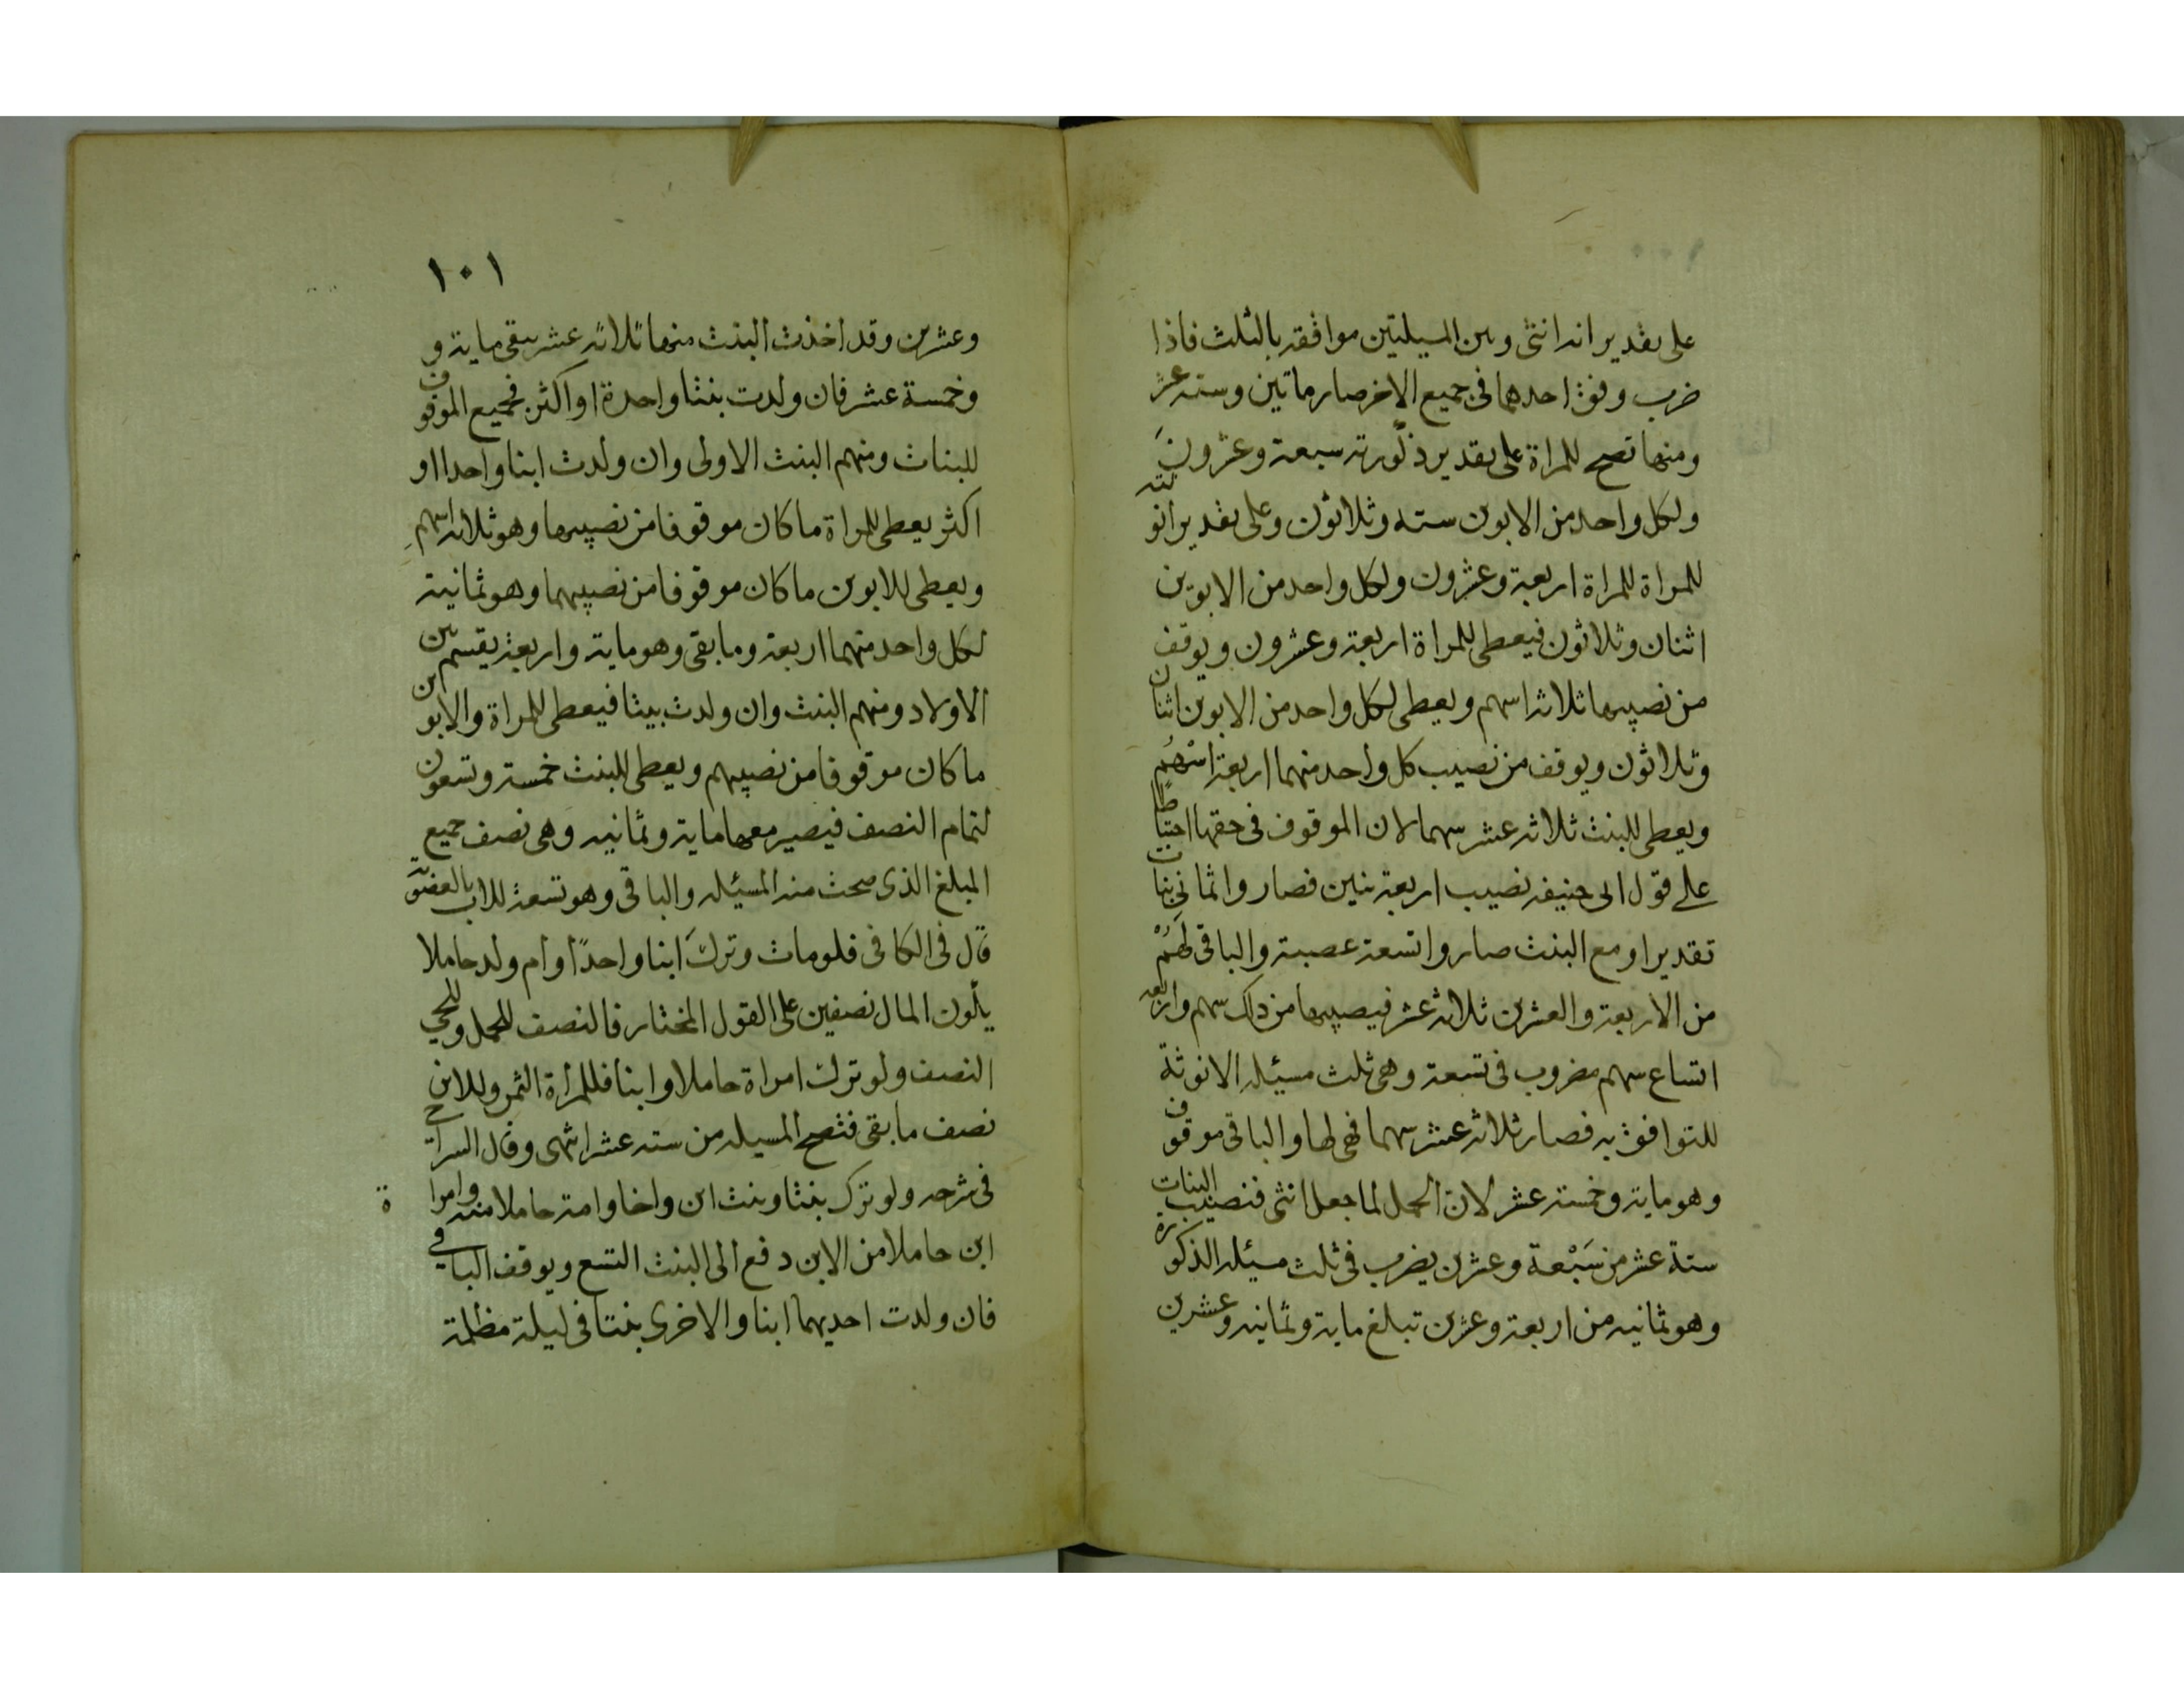 على تقدير انه انثى وبين المسيلتين موافقة بالثلث فاذا
ضرب وفق احدهما فى جميع الاخر صار ماتين وستة عشر
ومنها تصح للمراة على تقدير ذكورته سبعة وعشرون
ولكل واحد من الابوين ستة وثلاثون وعلى تقدير انوثته
للمراة للمراة اربعة وعشرون ولكل واحد من الابوين
اثنان وثلاثون فيعطى للمراة اربعة وعشرون ويوقف
من نصيبها ثلاثة اسهم ويعطى لكل واحد من الابوين اثنان
وثلاثون ويوقف من نصيب كل واحد منهما اربعة اسهم
ويعطى للبنت ثلاثة عشر سهما لان الموقوف فى حقها احتياطا
على قول ابى حنيفه نصيب اربعة بنين فصاروا ثمانى بنات
تقديرا ومع البنت صاروا تسعة عصبة والباقى لهم
من الاربعة والعشرين ثلاثة عشر فيصيبها من ذلك سهم واربعة
اتساع سهم مضروب فى تسعة وهى ثلث مسيلة الانوثة
للتوافق به فصار ثلاثة عشر سهما فهى لها والباقى موقوف
وهو ماية وخمسة عشر لان الحمل لما جعل انثى فنصيب البنات
ستة عشر من سَبْعة وعشرين يضرب فى ثلث مسيلة الذكورة
وهو ثمانيه من اربعة وعشرين تبلغ ماية وثمانيه وعشرين
١٠١
وعشرين وقد اخذت البنت منها ثلاثة عشر يبقى ماية و
وخمسة عشر فان ولدت بنتا واحدة او اكثر فجميع الموقوف
للبنات ومنهم البنت الاولى وان ولدت ابنا واحدا او
اكثر يعطى للمراة ما كان موقوفا من نصيبها وهو ثلاثة اسهم
ويعطى للابوين ما كان موقوفا من نصيبهما وهو ثمانية
لكل واحد منهما اربعة وما بقى وهو ماية واربعة يقسم بين
الاولاد ومنهم البنت وان ولدت بيتا فيعطى للمراة والابوين
ما كان موقوفا من نصيبهم ويعطى للبنت خمسة وتسعون
لتمام النصف فيصير معها ماية وثمانيه وهى نصف جميع
المبلغ الذى صحت منه المسئله والباقى وهو تسعة للاب
قال فى الكافى فلو مات وترك ابنا واحدًا وأم ولد حاملا
يكون المال نصفين على القول المختار فالنصف للحمل وللحي
النصف ولو ترك امراة حاملا وابنا فللمرأة الثمن وللابن
نصف ما بقى فتصح المسيله من سته عشر انتهى وقال السراج
فى شرحه ولو ترك بنتا وبنت ابن واخا وامة حاملا منه وامراة
ابن حاملا من الابن دفع الى البنت التسع ويوقف الباقي
فان ولدت احديهما ابنا والاخرى بنتا فى ليلة مظلمة